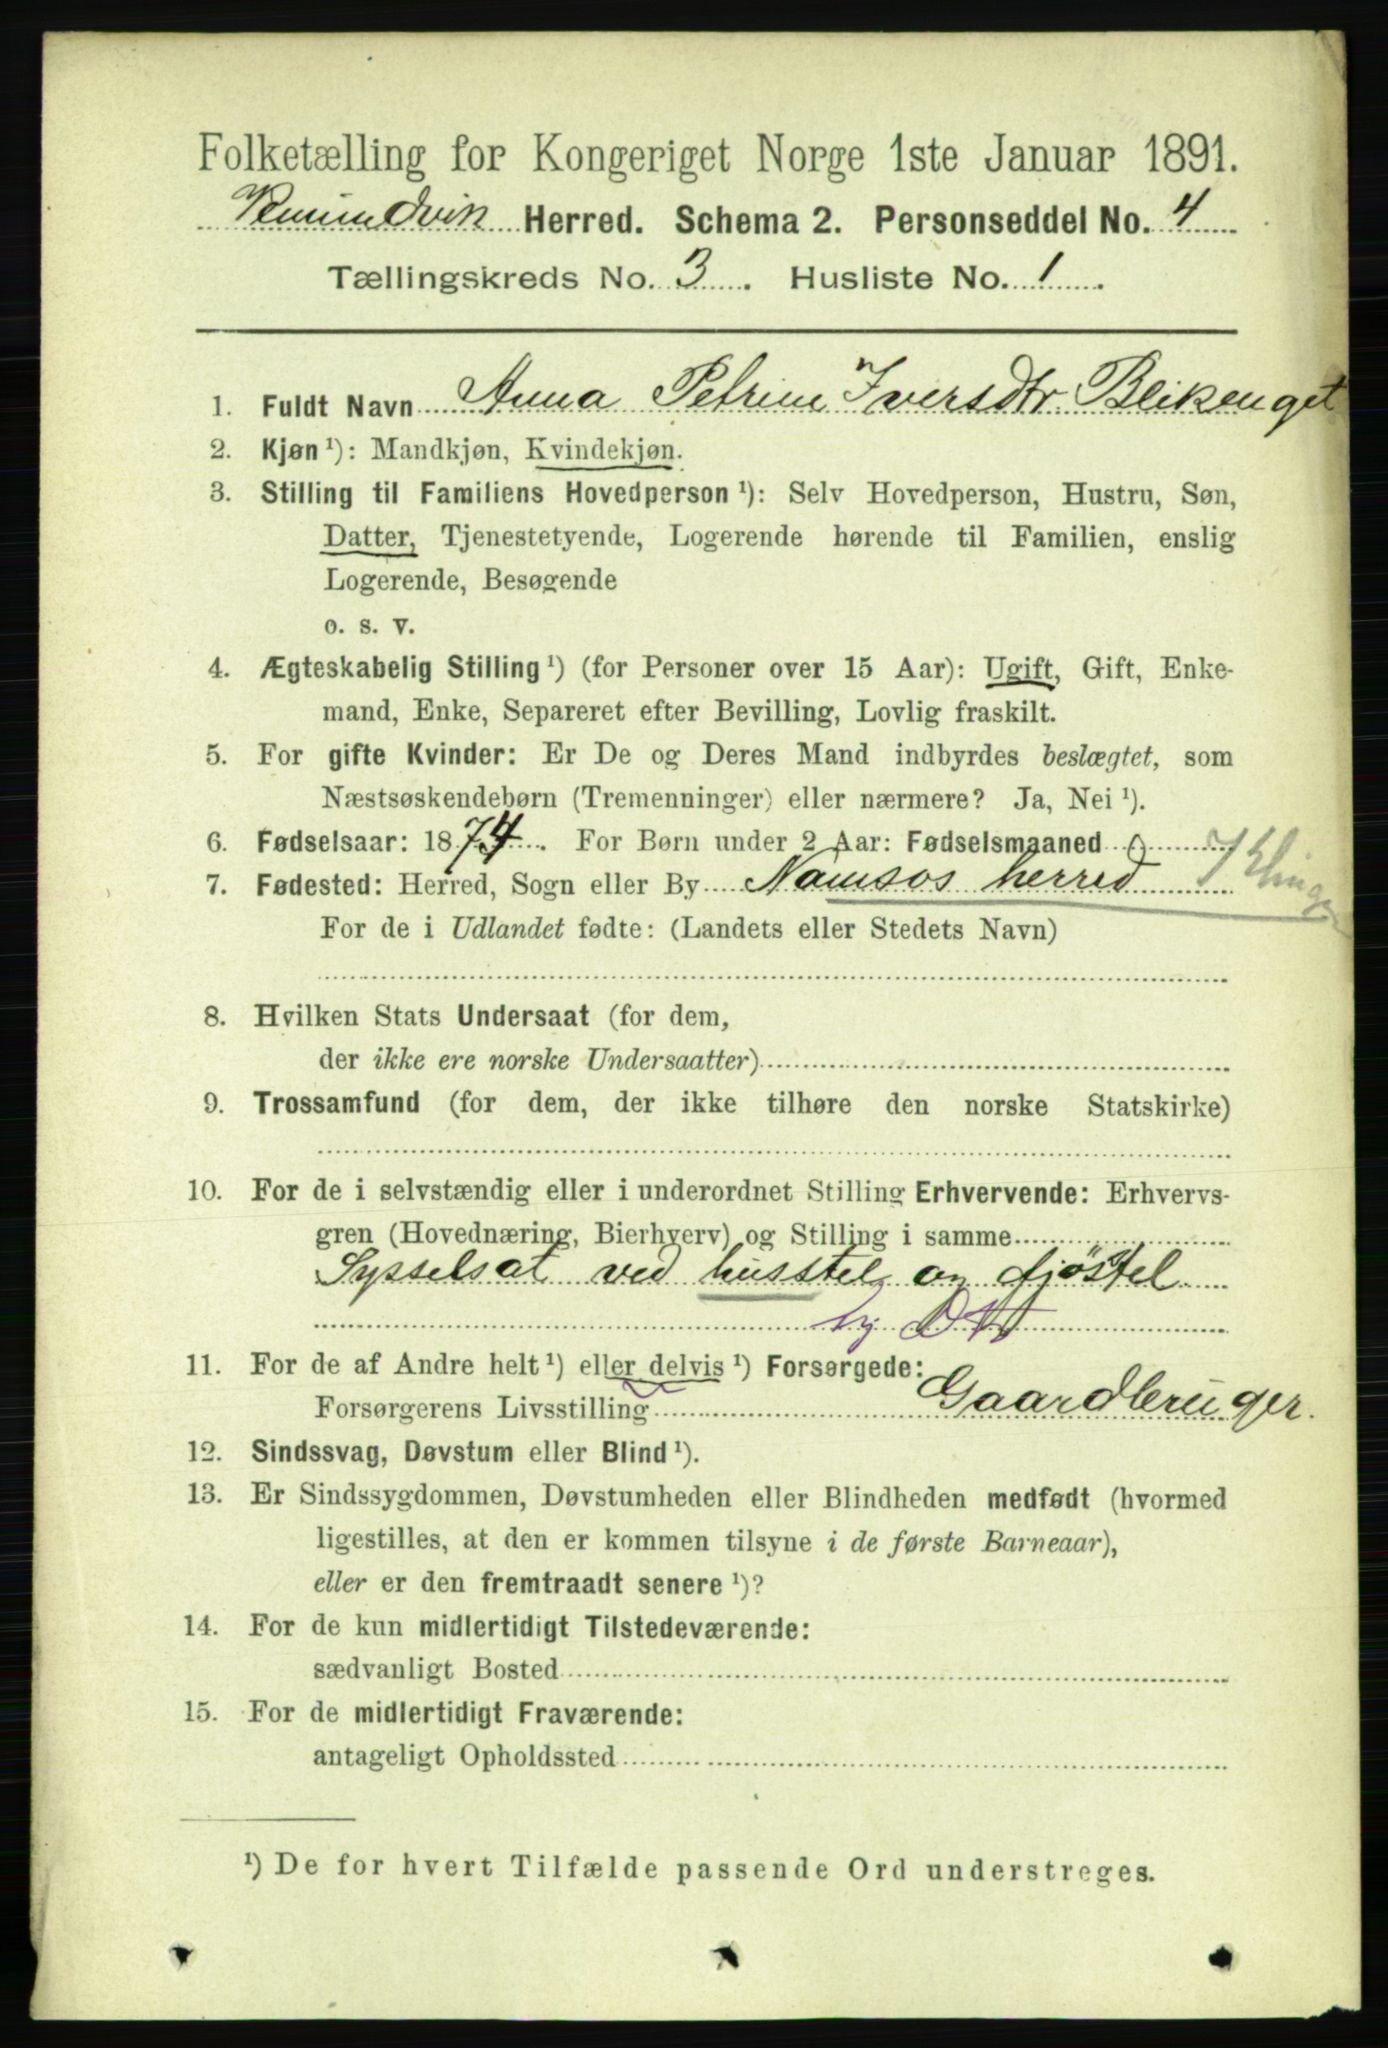 Folketælling for Kongeriget Norge 1ste Januar 1891.
Vemundvik Herred. Schema 2. Personseddel No. 4
Tællingskreds No. 3. Husliste No. 1.
1. Fuldt Navn Anna Petrine Iversdtr. Blikenget
2. Kjøn ¹): Mandkjøn, Kvindekjøn.
3. Stilling til Familiens Hovedperson ¹): Selv Hovedperson, Hustru, Søn,
Datter, Tjenestetyende, Logerende hørende til Familien, enslig
Logerende, Besøgende
o. s. v.
4. Ægteskabelig Stilling ¹) (for Personer over 15 Aar): Ugift, Gift, Enke-
mand, Enke, Separeret efter Bevilling, Lovlig fraskilt.
5. For gifte Kvinder: Er De og Deres Mand indbyrdes beslægtet, som
Næstsøskendebørn (Tremenninger) eller nærmere? Ja, Nei ¹).
6. Fødselsaar: 1874. For Børn under 2 Aar: Fødselsmaaned
7. Fødested: Herred, Sogn eller By Namsos herred
For de i Udlandet fødte: (Landets eller Stedets Navn)
8. Hvilken Stats Undersaat (for dem,
der ikke ere norske Undersaatter)
9. Trossamfund (for dem, der ikke tilhøre den norske Statskirke)
10. For de i selvstændig eller i underordnet Stilling Erhvervende: Erhvervs-
gren (Hovednæring, Bierhverv) og Stilling i samme
Sysselsat ved husstel og fjøstel
11. For de af Andre helt ¹) eller delvis ¹) Forsørgede:
Forsørgerens Livsstilling Gaardbruger.
12. Sindssvag, Døvstum eller Blind ¹).
13. Er Sindssygdommen, Døvstumheden eller Blindheden medfødt (hvormed
ligestilles, at den er kommen tilsyne i de første Barneaar),
eller er den fremtraadt senere ¹)?
14. For de kun midlertidigt Tilstedeværende:
sædvanligt Bosted
15. For de midlertidigt Fraværende:
antageligt Opholdssted
¹) De for hvert Tilfælde passende Ord understreges.